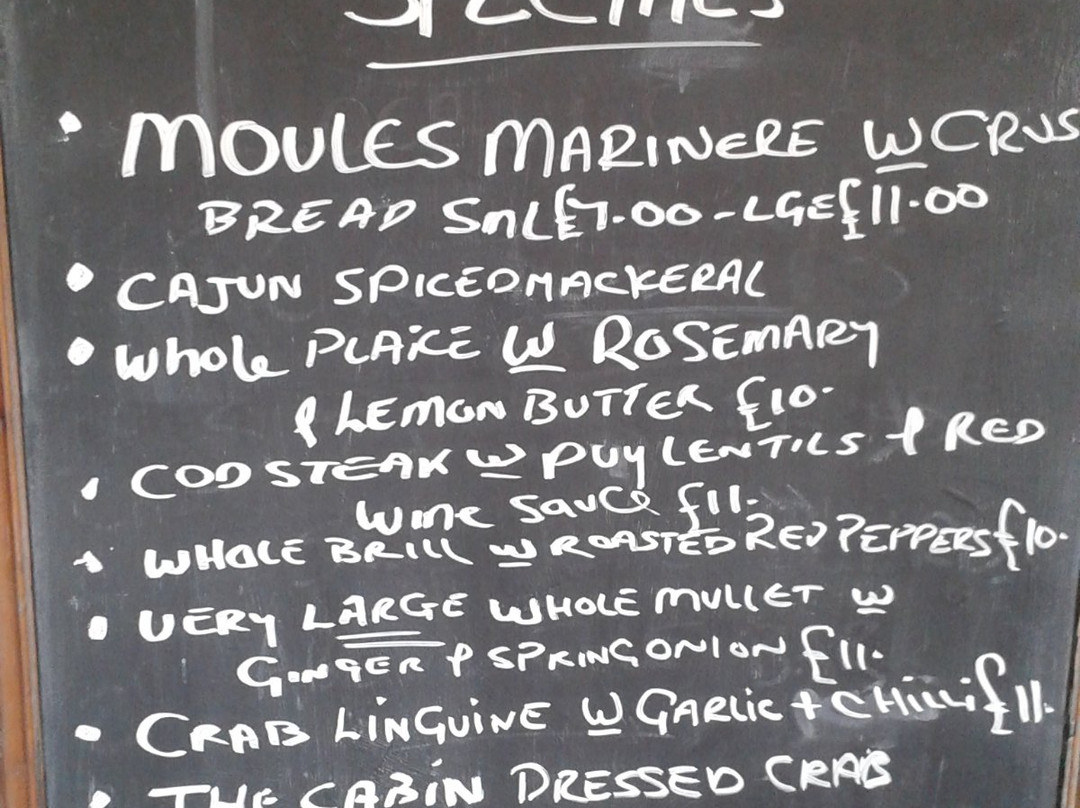 SPECIALS
• MOULES MARINERE W CRUS
BREAD SML £7.00 - LGE £11.00
• CAJUN SPICED MACKERAL
• Whole PLAICE W ROSEMARY
& LEMON BUTTER £10.
• COD STEAK W PUY LENTILS & RED
Wine Sauce £11.
• WHOLE BRILL W ROASTED RED PEPPERS £10.
• VERY LARGE WHOLE MULLET W
GINGER & SPRING ONION £11.
• CRAB LINGUINE W GARLIC + CHILLI £11.
• THE CABIN DRESSED CRAB